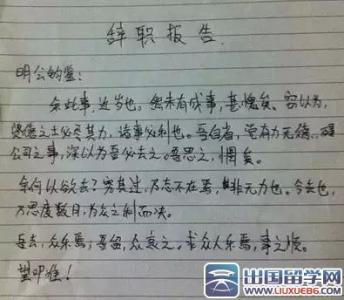 辞职报告
明公钧鉴:
余此事,近岁也,偶未有成事,甚愧矣。窃以为,
贤德之士必尽其力,诸事必利也。吾自省,空有力无德,碍
公司之事,深以为吾必去之。吾思之,惘矣。
余何以欲去?穷其过,乃志不在焉,非无力也。今去也,
乃思度数月,为众之利而决。
吾去,众乐焉;吾留,众哀之。求众人乐焉,事之终。
望叩准!
出国留学网
www.liuxue86.com